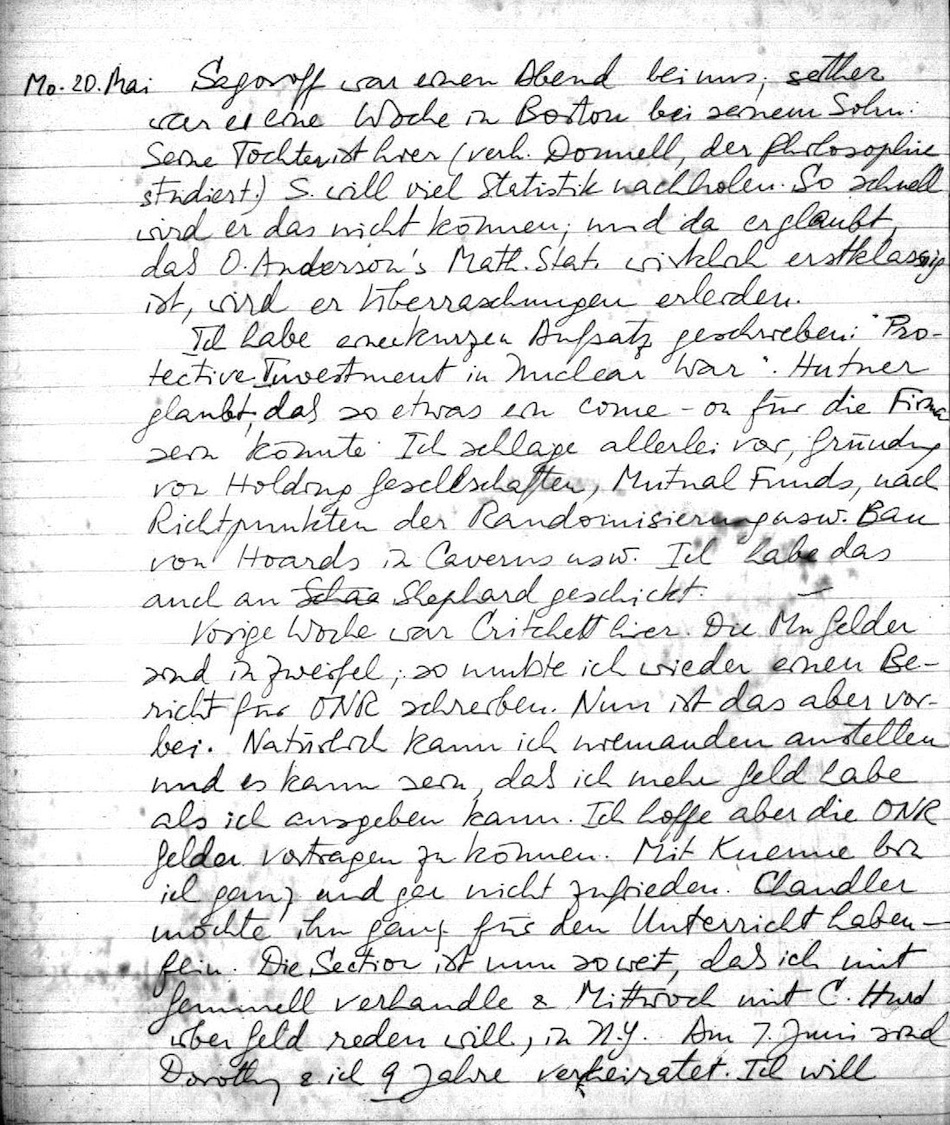 Mo. 20. Mai Segoroff war einen Abend bei uns; seither
war er eine Woche in Boston bei seinem Sohn.
Seine Tochter ist hier (verh. Donnell, der Philosophie
studiert.) S. will viel Statistik nachholen. So schnell
wird er das nicht können; und da er glaubt,
das O. Anderson's Math. Stat. wirklich erstklassig
ist, wird er Überraschungen erleiden.
Ich habe einen kurzen Aufsatz geschrieben: "Pro-
tective Investment in Nuclear War". Hutner
glaubt, das so etwas ein come-on für die Firma
sein könnte. Ich schlage allerlei vor, Gründung
von Holding Gesellschaften, Mutual Funds, nach
Richtpunkten der Randomisierung usw. Bau
von Hoards in Caverns usw. Ich habe das
auch an Schaa Shephard geschickt. –
Vorige Woche war Critchett hier. Die Gelder
sind in Zweifel; so mußte ich wieder einen Be-
richt für ONR schreiben. Nun ist das aber vor-
bei. Natürlich kann ich niemanden anstellen
und es kann sein, das ich mehr Geld habe
als ich ausgeben kann. Ich hoffe aber die ONR
Gelder vortragen zu können. Mit Kuenne bin
ich ganz und gar nicht zufrieden. Chandler
möchte ihn ganz für den Unterricht haben –
fein. Die Section ist nun so weit, das ich mit
Gemmell verhandle & Mittwoch mit C. Hurd
über Geld reden will, in N.Y. Am 7. Juni sind
Dorothy & ich 9 Jahre verheiratet. Ich will